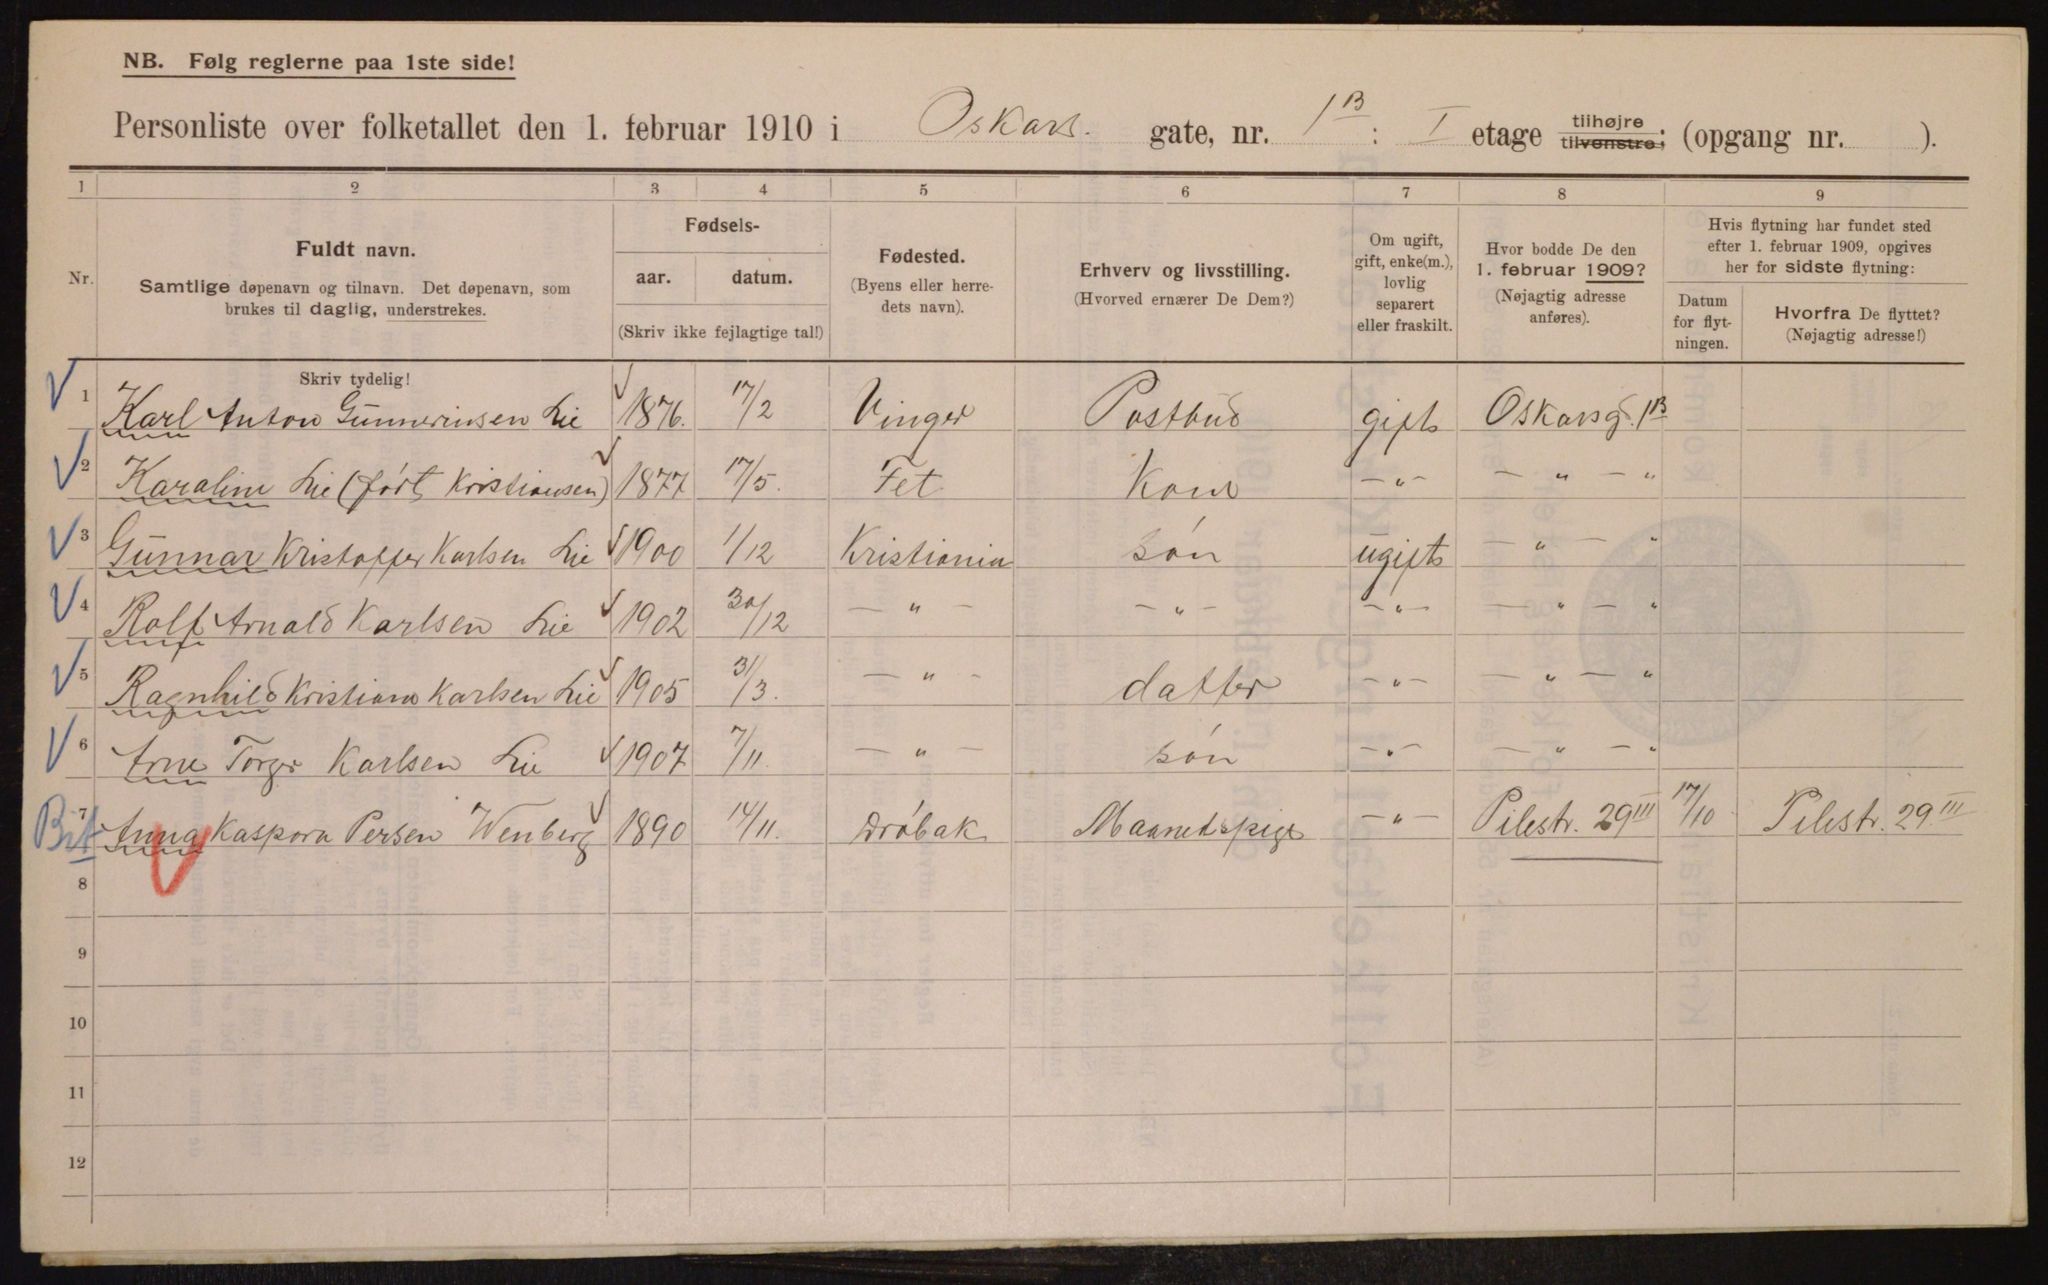 NB. Følg reglerne paa 1ste side!
Personliste over folketallet den 1. februar 1910 i Oskars. gate, nr. 1B : I etage tilhøjre tilvenstre; (opgang nr. ).
1 2 3 4 5 6 7 8 9
Nr.
Fuldt navn.
Samtlige døpenavn og tilnavn. Det døpenavn, som
brukes til daglig, understrekes.
Skriv tydelig!
Fødsels-
aar. datum.
(Skriv ikke fejlagtige tal!)
Fødested.
(Byens eller herre-
dets navn).
Erhverv og livsstilling.
(Hvorved ernærer De Dem?)
Om ugift,
gift, enke(m.),
lovlig
separert
eller fraskilt.
Hvor bodde De den
1. februar 1909?
(Nøjagtig adresse
anføres).
Hvis flytning har fundet sted
efter 1. februar 1909, opgives
her for sidste flytning:
Datum
for flyt-
ningen.
Hvorfra De flyttet?
(Nøjagtig adresse!)
1 Karl Anton Gunnerinsen Lie 1876. 17/2 Vinger Postbud gift Oskarsg. 1B
2 Karaline Lie (født Kristiansen) 1877 17/5. Fet Kone – " – – " – "
3 Gunnar Kristoffer Karlsen Lie 1900 1/12 Kristiania søn ugift – " – "
4 Rolf Arnold Karlsen Lie 1902 30/12 – " – – " – – " – – " – "
5 Ragnhild Kristiane Karlsen Lie 1905 31/3. – " – datter – " – – " – "
6 Arne Torger Karlsen Lie 1907 7/11. – " – søn – " – – " – "
7 Anna Kaspora Persen Wenberg 1890 14/11. Drøbak Maanedspige – " – Pilestr. 29 III 17/10 Pilestr. 29 III
8
9
10
11
12